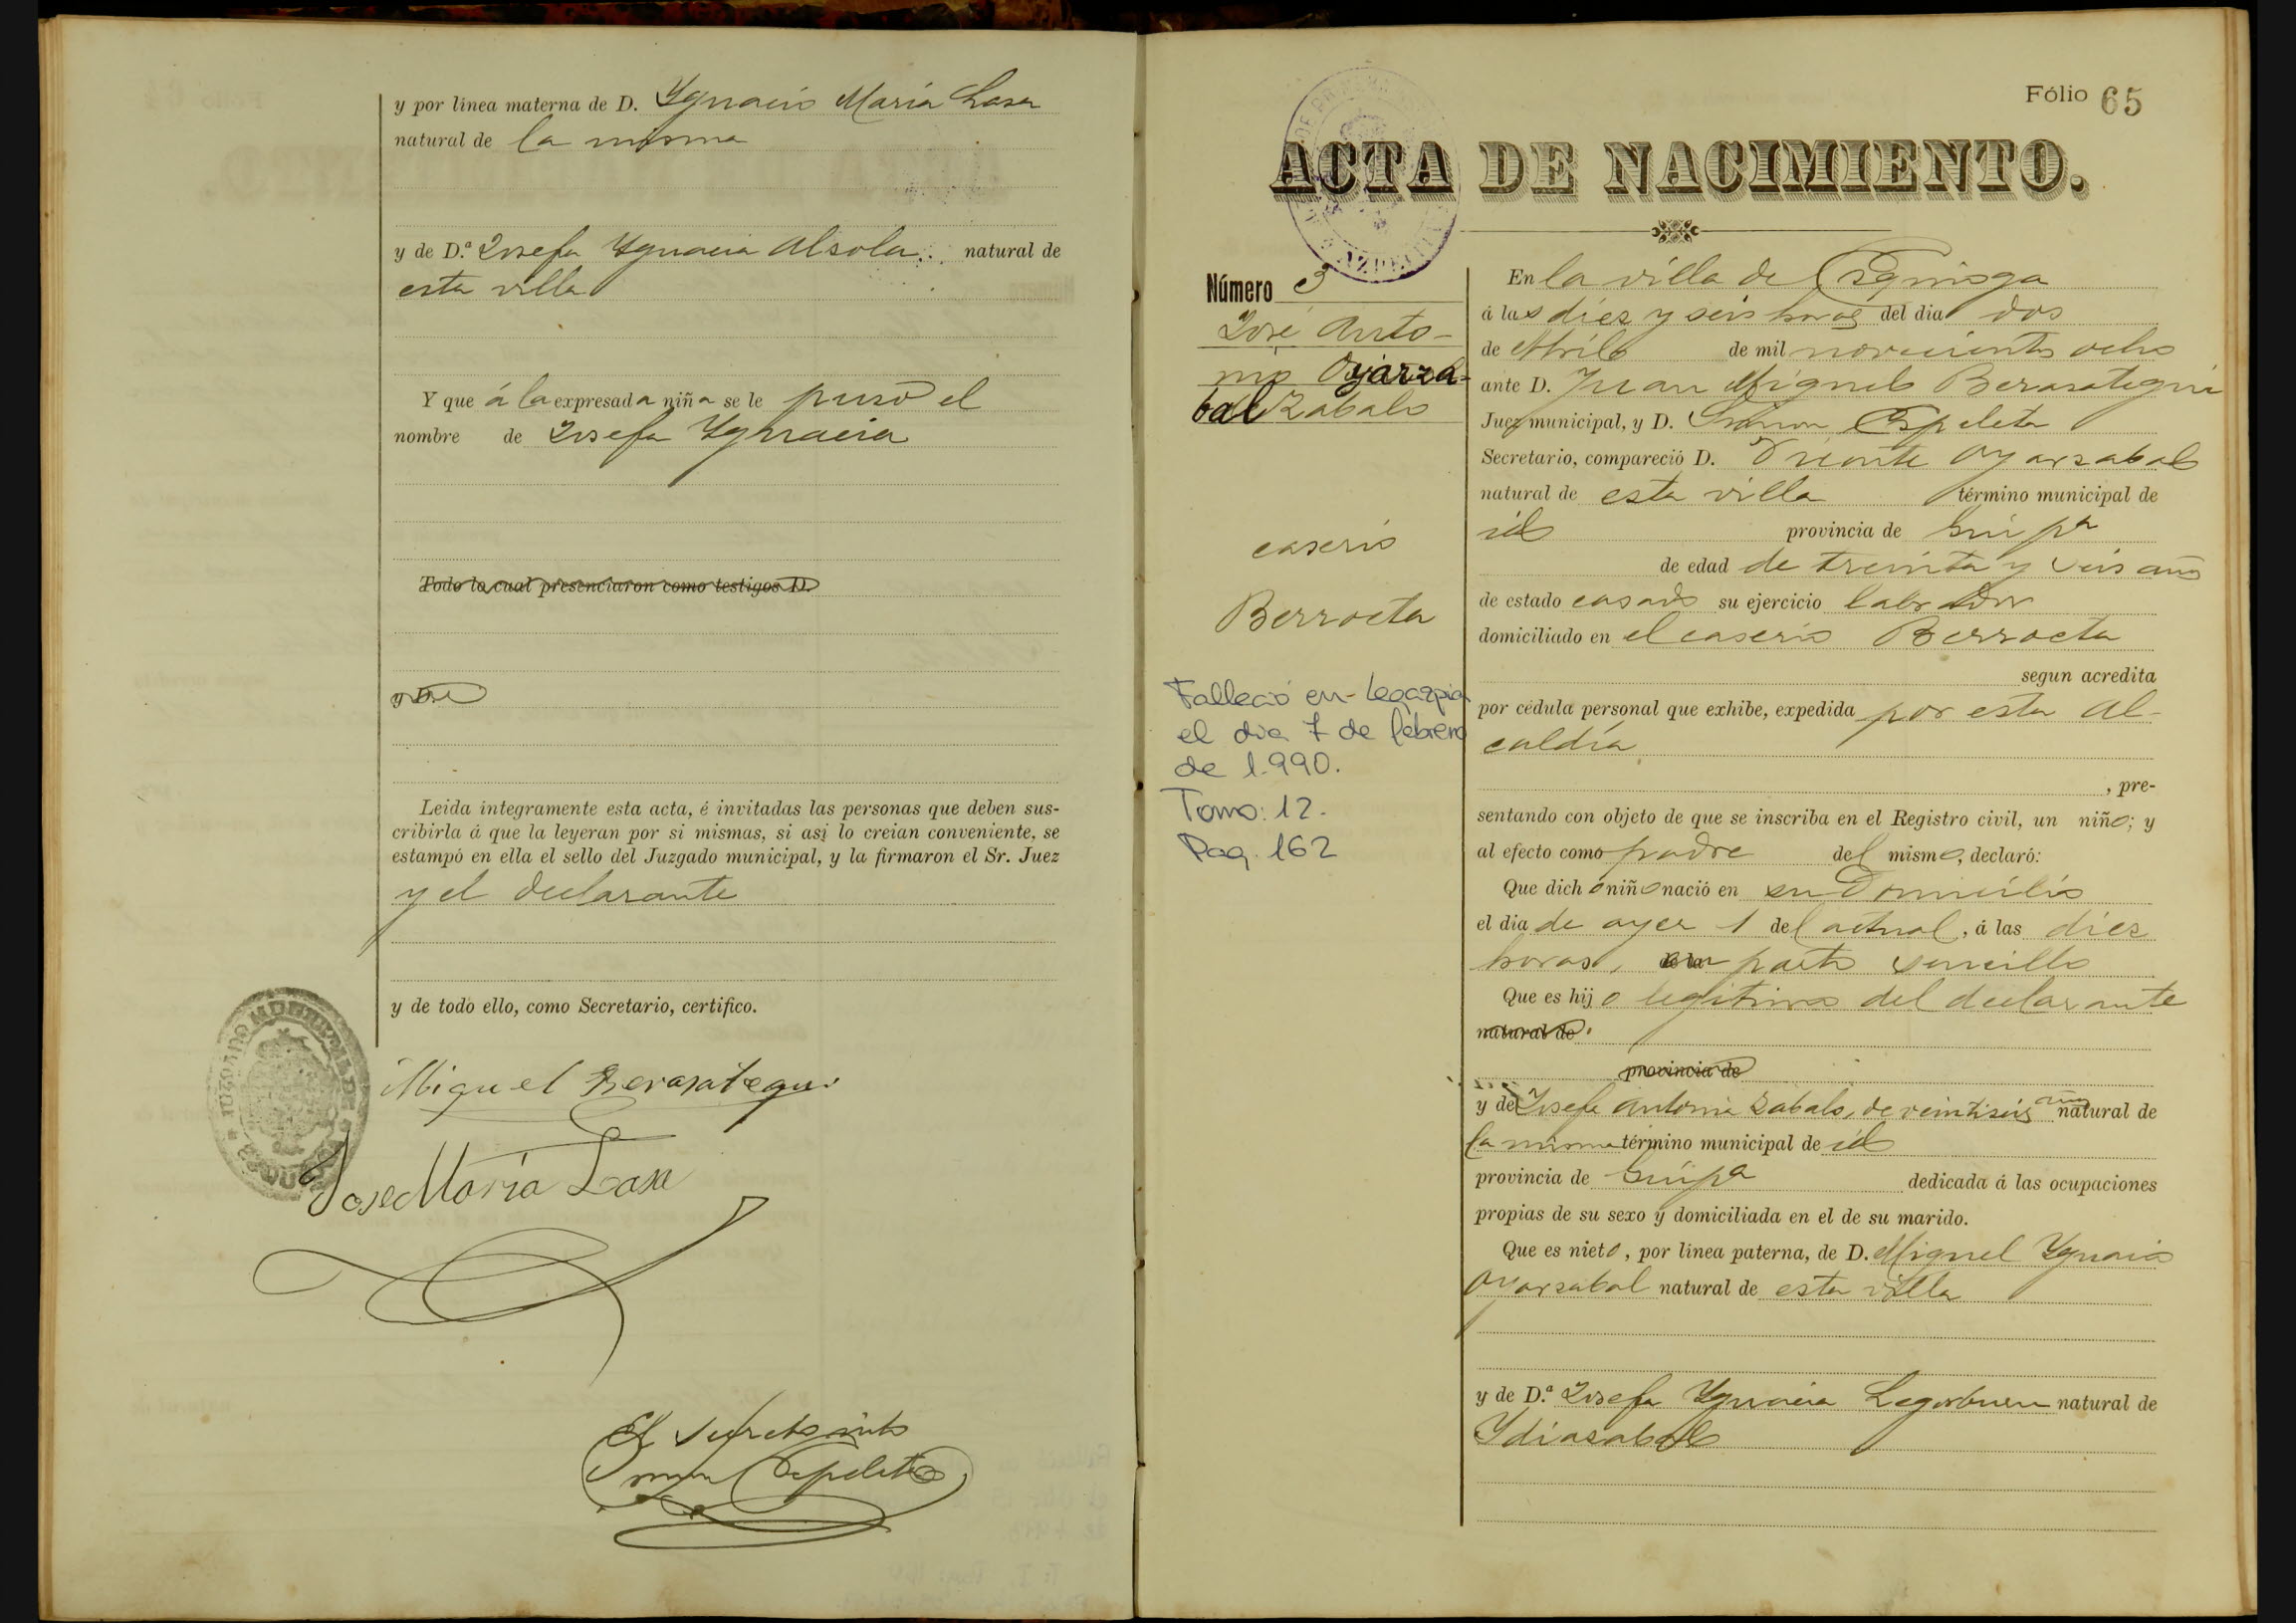 y por línea materna de D. Ygnacio María Lasa
natural de la misma
y de D.ª Josefa Ygnacia Alsola natural de
esta villa
Y que á la expresada niña se le puso el
nombre de Josefa Ygnacia
Todo lo cual presenciaron como testigos D.
y D.
Leida integramente esta acta, é invitadas las personas que deben sus-
cribirla á que la leyeran por si mismas, si asi lo creian conveniente, se
estampó en ella el sello del Juzgado municipal, y la firmaron el Sr. Juez
y el declarante
y de todo ello, como Secretario, certifico.
Miguel Berasategui
José María Lasa
El Secretario
Espeleta
Fólio 65
ACTA DE NACIMIENTO.
Número 3
José Anto-
nio Oyarza-
bal Zabalo
caserio
Berroeta
Falleció en Legazpia
el dia 7 de febrero
de 1.990.
Tomo: 12.
Pag. 162
En la villa de Ezquioga
á las diez y seis horas del dia dos
de Abril de mil novecientos ocho
ante D. Juan Miguel Berasategui
Juez municipal, y D. Simon Espeleta
Secretario, compareció D. Vicente Oyarzabal
natural de esta villa término municipal de
id provincia de Guipª
de edad de treinta y seis años
de estado casado su ejercicio labrador
domiciliado en el caserio Berroeta
segun acredita
por cédula personal que exhibe, expedida por esta Al-
caldía
, pre-
sentando con objeto de que se inscriba en el Registro civil, un niño; y
al efecto como padre del mismo, declaró:
Que dicho niño nació en su domicilio
el dia de ayer 1 del actual, á las diez
horas, parto sencillo
Que es hijo legitimo del declarante
natural de
provincia de
y de Josefa Antonia Zabalo, de veintiseis años natural de
la misma término municipal de id
provincia de Guipª dedicada á las ocupaciones
propias de su sexo y domiciliada en el de su marido.
Que es nieto, por línea paterna, de D. Miguel Ygnacio
Oyarzabal natural de esta villa
y de D.ª Josefa Ygnacia Legorburu natural de
Ydiazabal